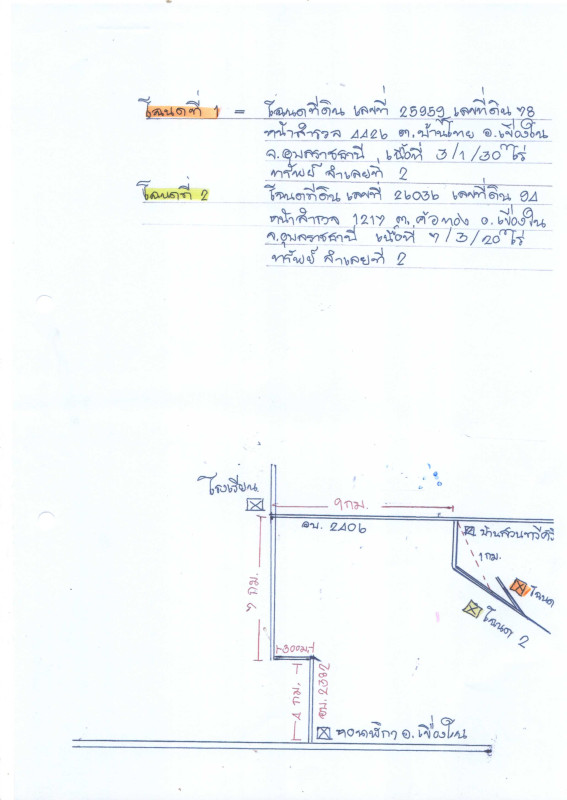 โฉนดที่ 1 = โฉนดที่ดิน เลขที่ 25959 เลขที่ดิน 78
หน้าสำรวจ 4426 ต.บ้านไทย อ.เขื่องใน
จ.อุบลราชธานี เนื้อที่ 3/1/30 ไร่
ทรัพย์ จำเลยที่ 2
โฉนดที่ 2 โฉนดที่ดิน เลขที่ 26036 เลขที่ดิน 94
หน้าสำรวจ 1217 ต.ค้อทอง อ.เขื่องใน
จ.อุบลราชธานี เนื้อที่ 7/3/20 ไร่
ทรัพย์ จำเลยที่ 2
โรงเรียน
9 กม.
อบ. 2406
บ้านสวน
1 กม.
โฉนด
โฉนด 2
7 กม.
300ม.
4 กม.
อบ. 2382
หอนาฬิกา อ.เขื่องใน